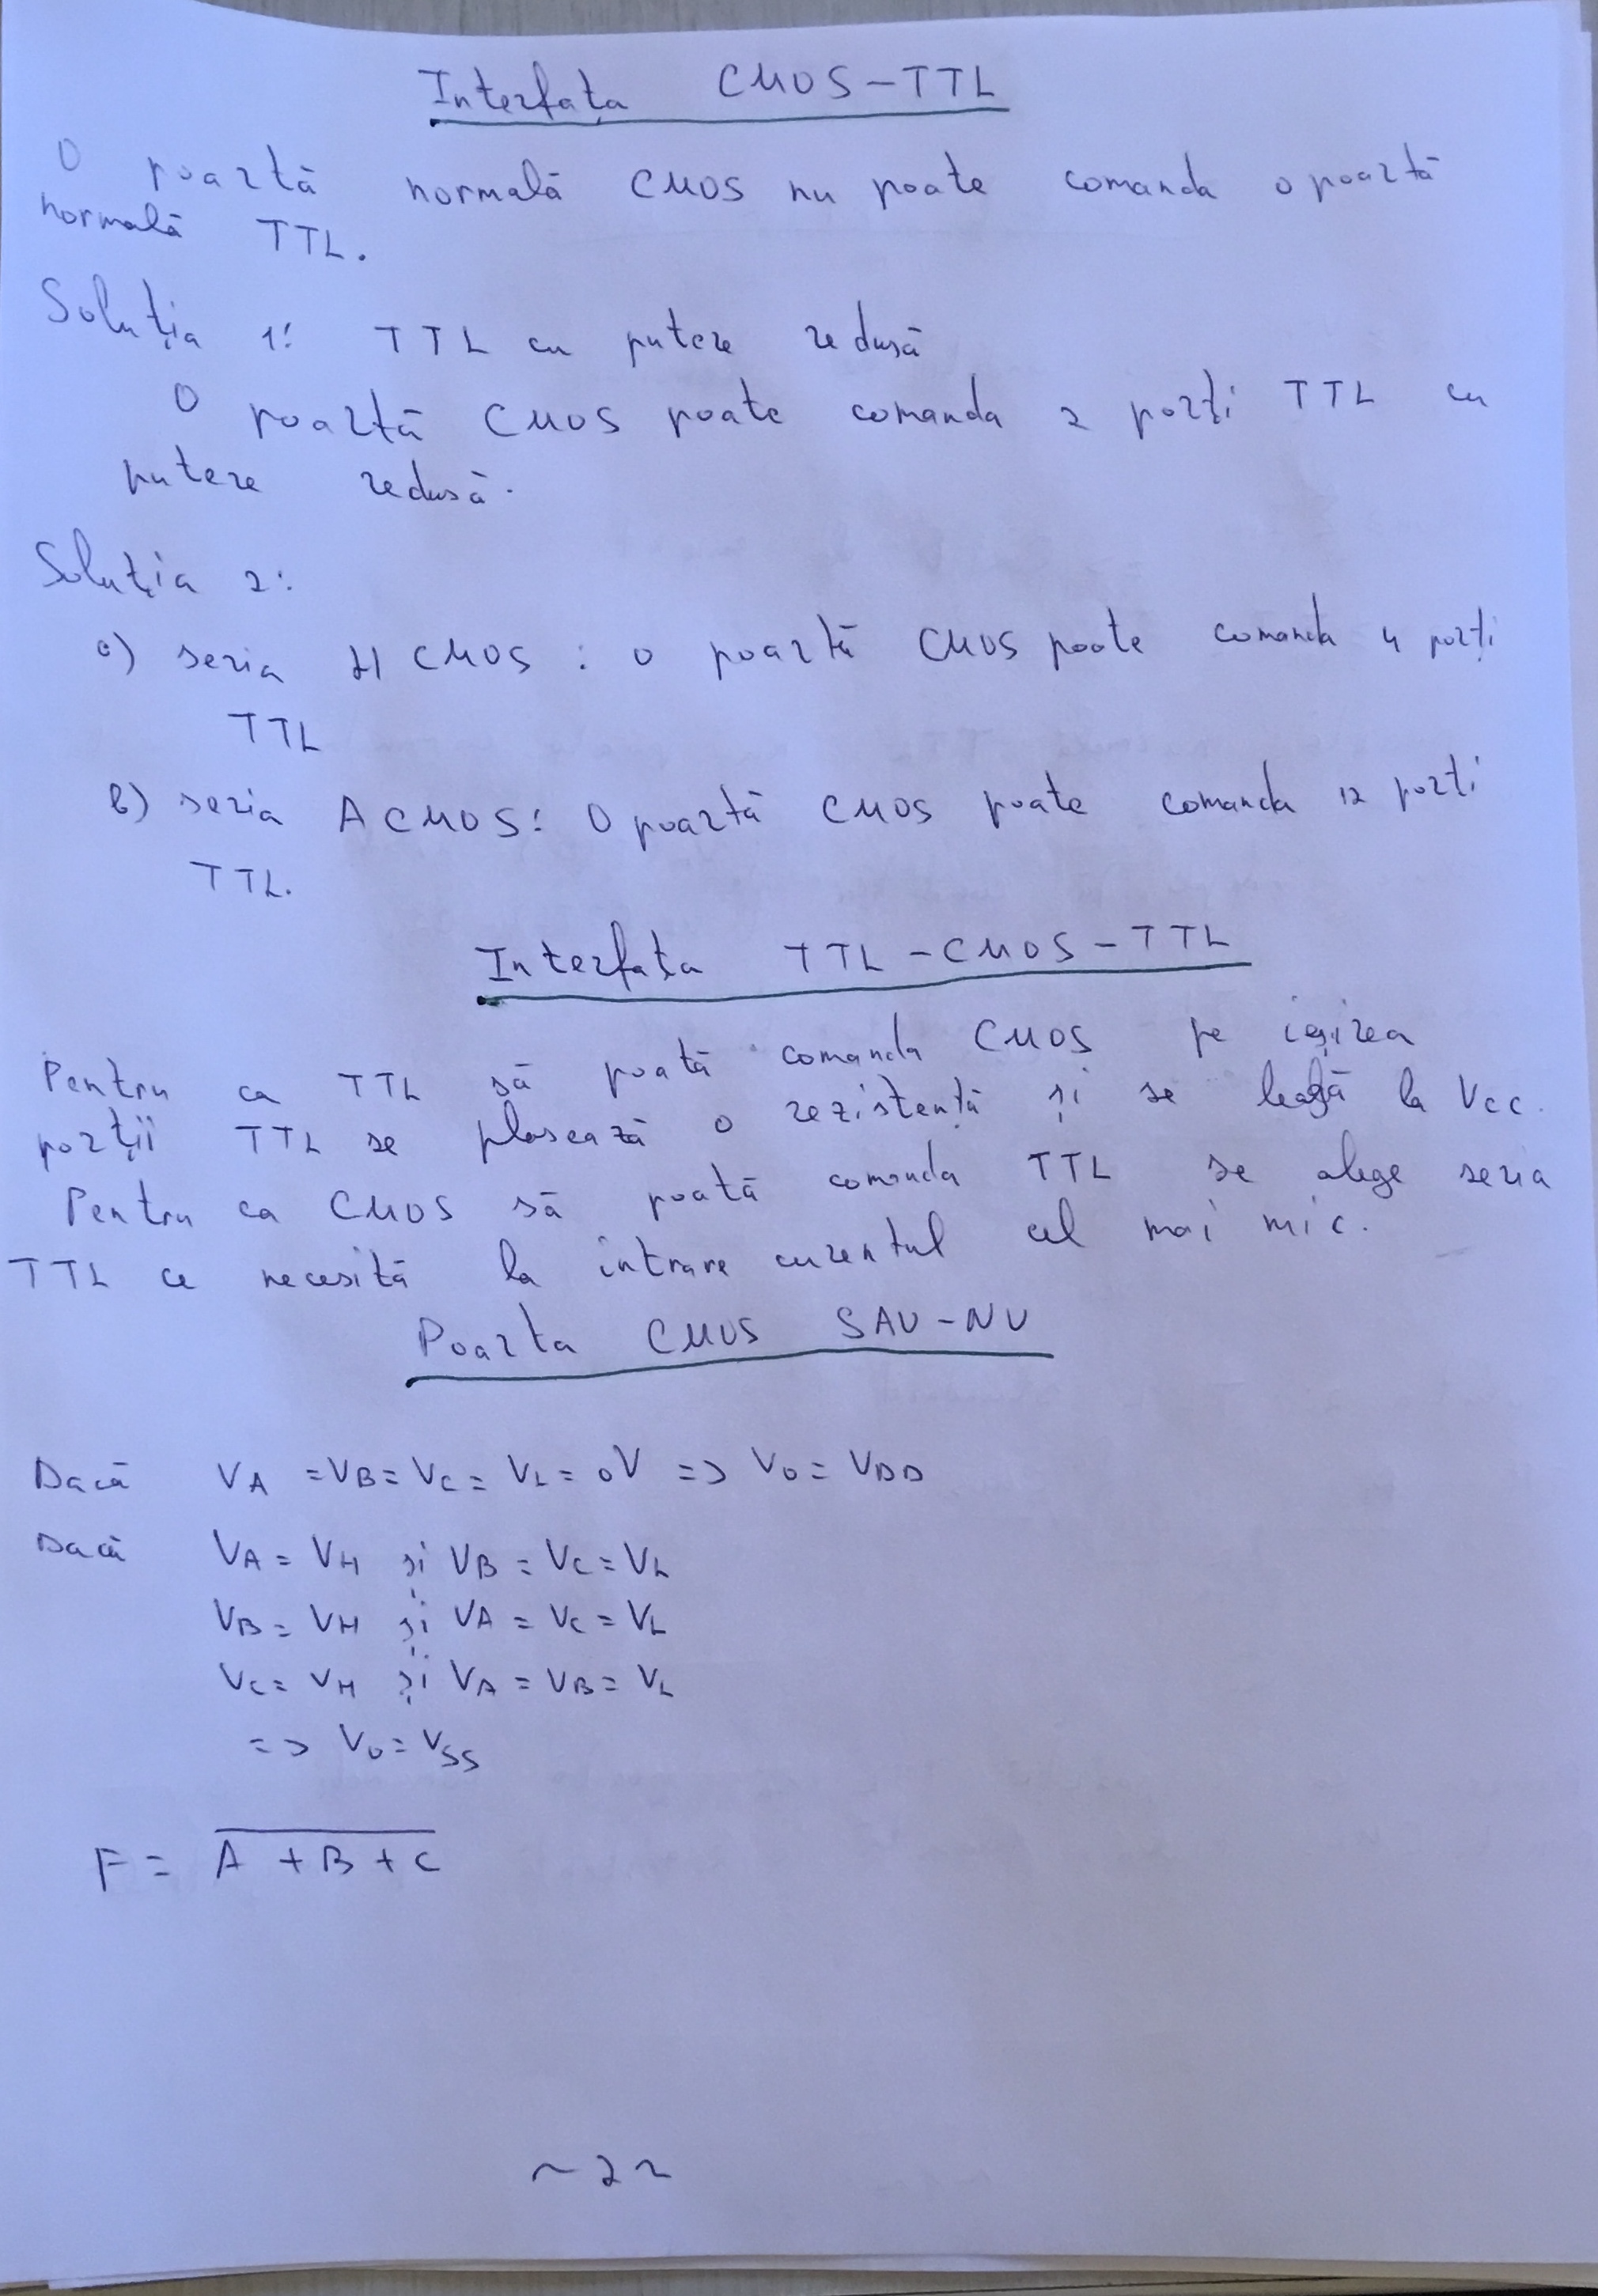 Interfața CMOS-TTL
O poartă normală CMOS nu poate comanda o poartă
normală TTL.
Soluția 1: TTL cu putere redusă
O poartă CMOS poate comanda 2 porți TTL cu
putere redusă.
Soluția 2:
a) seria HCMOS: o poartă CMOS poate comanda 4 porți
TTL
b) seria ACMOS: O poartă CMOS poate comanda 12 porți
TTL.
Interfața TTL-CMOS-TTL
Pentru ca TTL să poată comanda CMOS pe ieșirea
porții TTL se plasează o rezistență și se leagă la Vcc.
Pentru ca CMOS să poată comanda TTL se alege seria
TTL ce necesită la intrare curentul cel mai mic.
Poarta CMOS SAU-NU
Dacă VA = VB = VC = VL = 0V => VO = VDD
Dacă VA = VH și VB = VC = VL
VB = VH și VA = VC = VL
VC = VH și VA = VB = VL
=> VO = VSS
F = \overline{A + B + C}
~2~